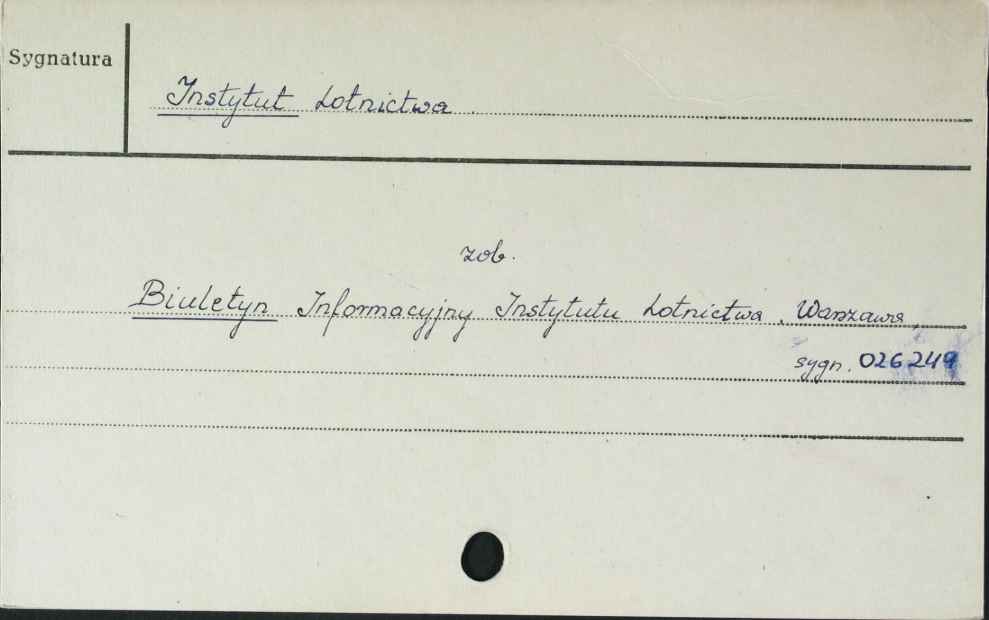 Sygnatura
Instytut Lotnictwa.
zob.
Biuletyn Informacyjny Instytutu Lotnictwa, Warszawa,
sygn. 026249